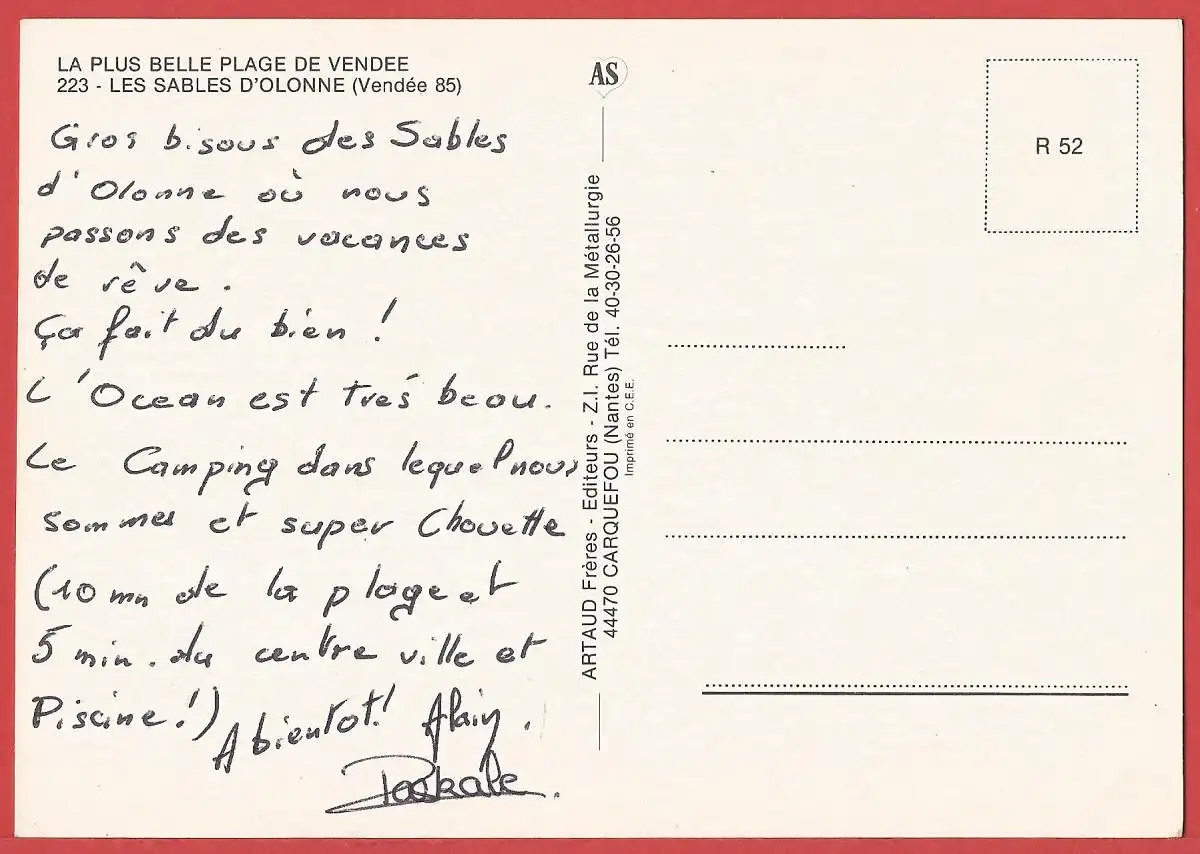 LA PLUS BELLE PLAGE DE VENDEE
223 - LES SABLES D'OLONNE (Vendée 85)
Gros bisous des Sables
d'Olonne où nous
passons des vacances
de rêve.
Ça fait du bien !
L'Ocean est trés beau.
Le Camping dans lequel nous
sommes et super Chouette
(10 mn de la plage et
5 min. du centre ville et
Piscine !)
A bientot! Alain.
Paskale.
AS
ARTAUD Frères - Editeurs - Z.I. Rue de la Métallurgie
44470 CARQUEFOU (Nantes) Tél. 40-30-26-56
Imprimé en C.E.E.
R 52